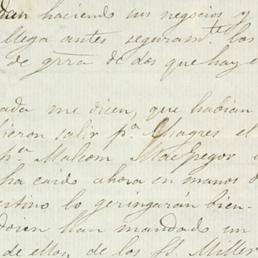 dan haciendo sus negocios y
llega antes seguramte. los
de grra de dos que hay e
ada me dicen, que habian
ieron salir pa. Chagres el
pa Malcom MacGregor
ha caido ahora en manos d
ntino lo geringarán bien
dicen han mandado un
de ellos, de los SS. Miller